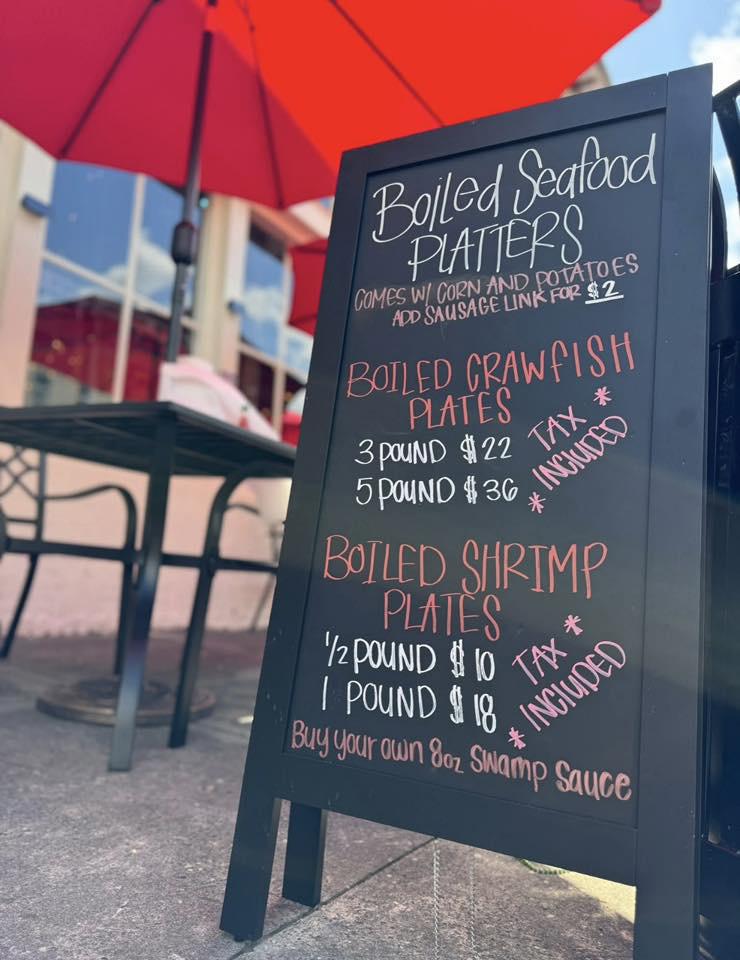 Boiled Seafood
PLATTERS
COMES W/ CORN AND POTATOES
ADD SAUSAGE LINK FOR $2
BOILED CRAWFISH
PLATES
3 POUND $22
5 POUND $36
* TAX
INCLUDED *
BOILED SHRIMP
PLATES
1/2 POUND $10
1 POUND $18
* TAX
INCLUDED *
Buy your own 8oz Swamp Sauce